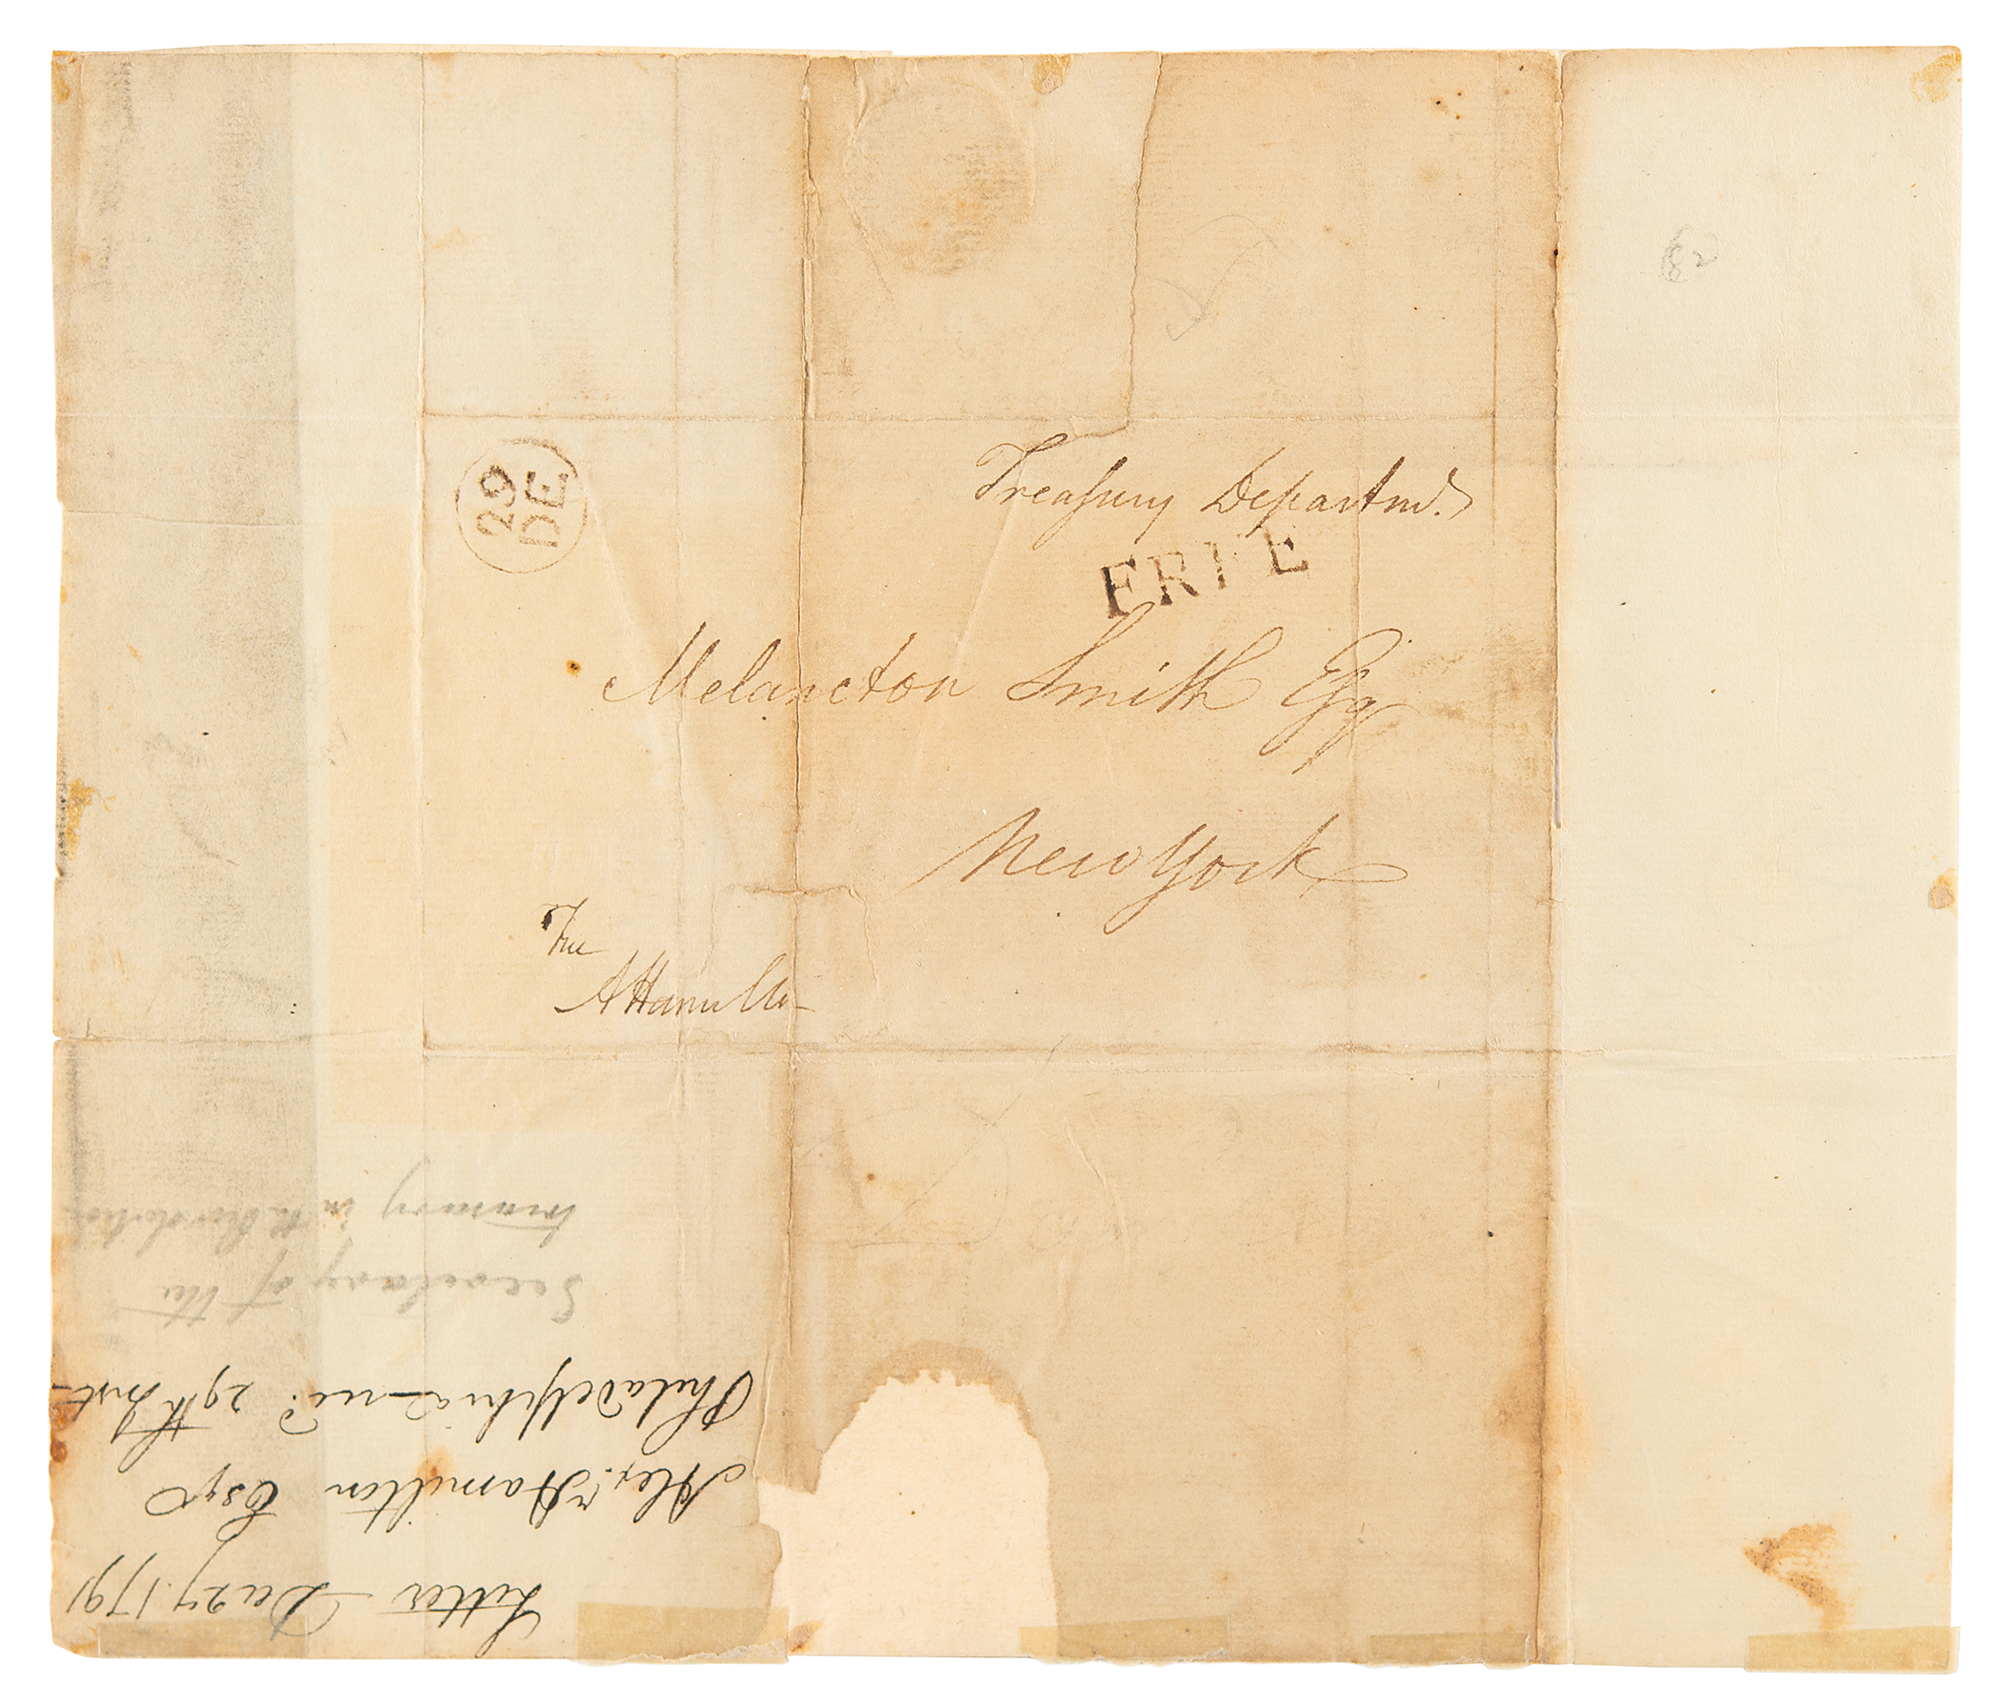 29
DE
Treasury Departmt.
FREE
Melancton Smith Esq
New York
Free
AHamilton
Letter Dec 27. 1791
Alexr. Hamilton Esqr
Philadelphia recd. 29th Inst
Secretary of the
treasury in the Revolution
82